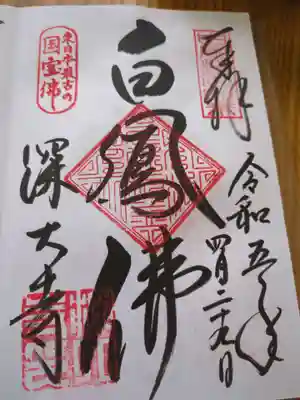 奉拝
令和五年
四月二十九日
白鳳佛
東日本最古の
国宝佛
深大寺